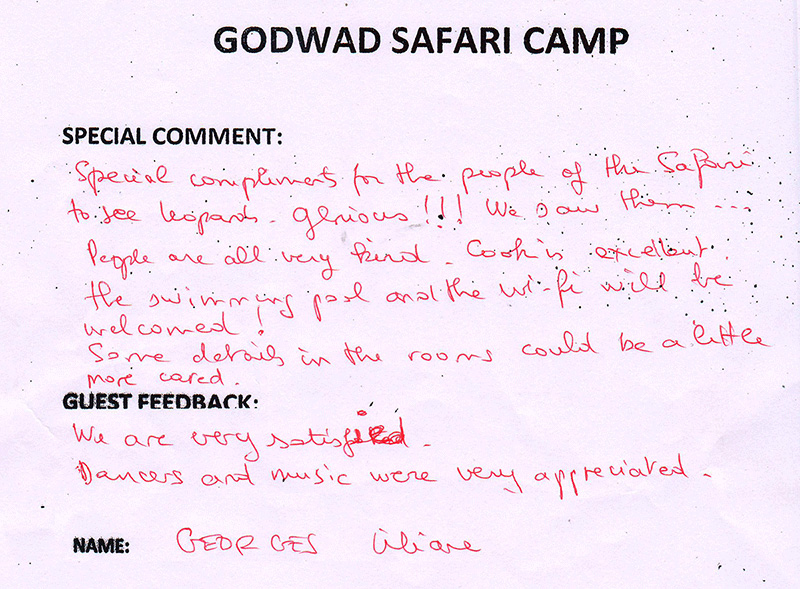 GODWAD SAFARI CAMP
SPECIAL COMMENT:
Special compliments for the people of the Safari
to see leopards. Glorious!!! We saw them ...
People are all very kind. Cook is excellent.
the swimming pool and the wi-fi will be
welcomed!
Some details in the rooms could be a little
more cared.
GUEST FEEDBACK:
We are very satisfied.
Dancers and music were very appreciated.
NAME: GEORGES Liliane